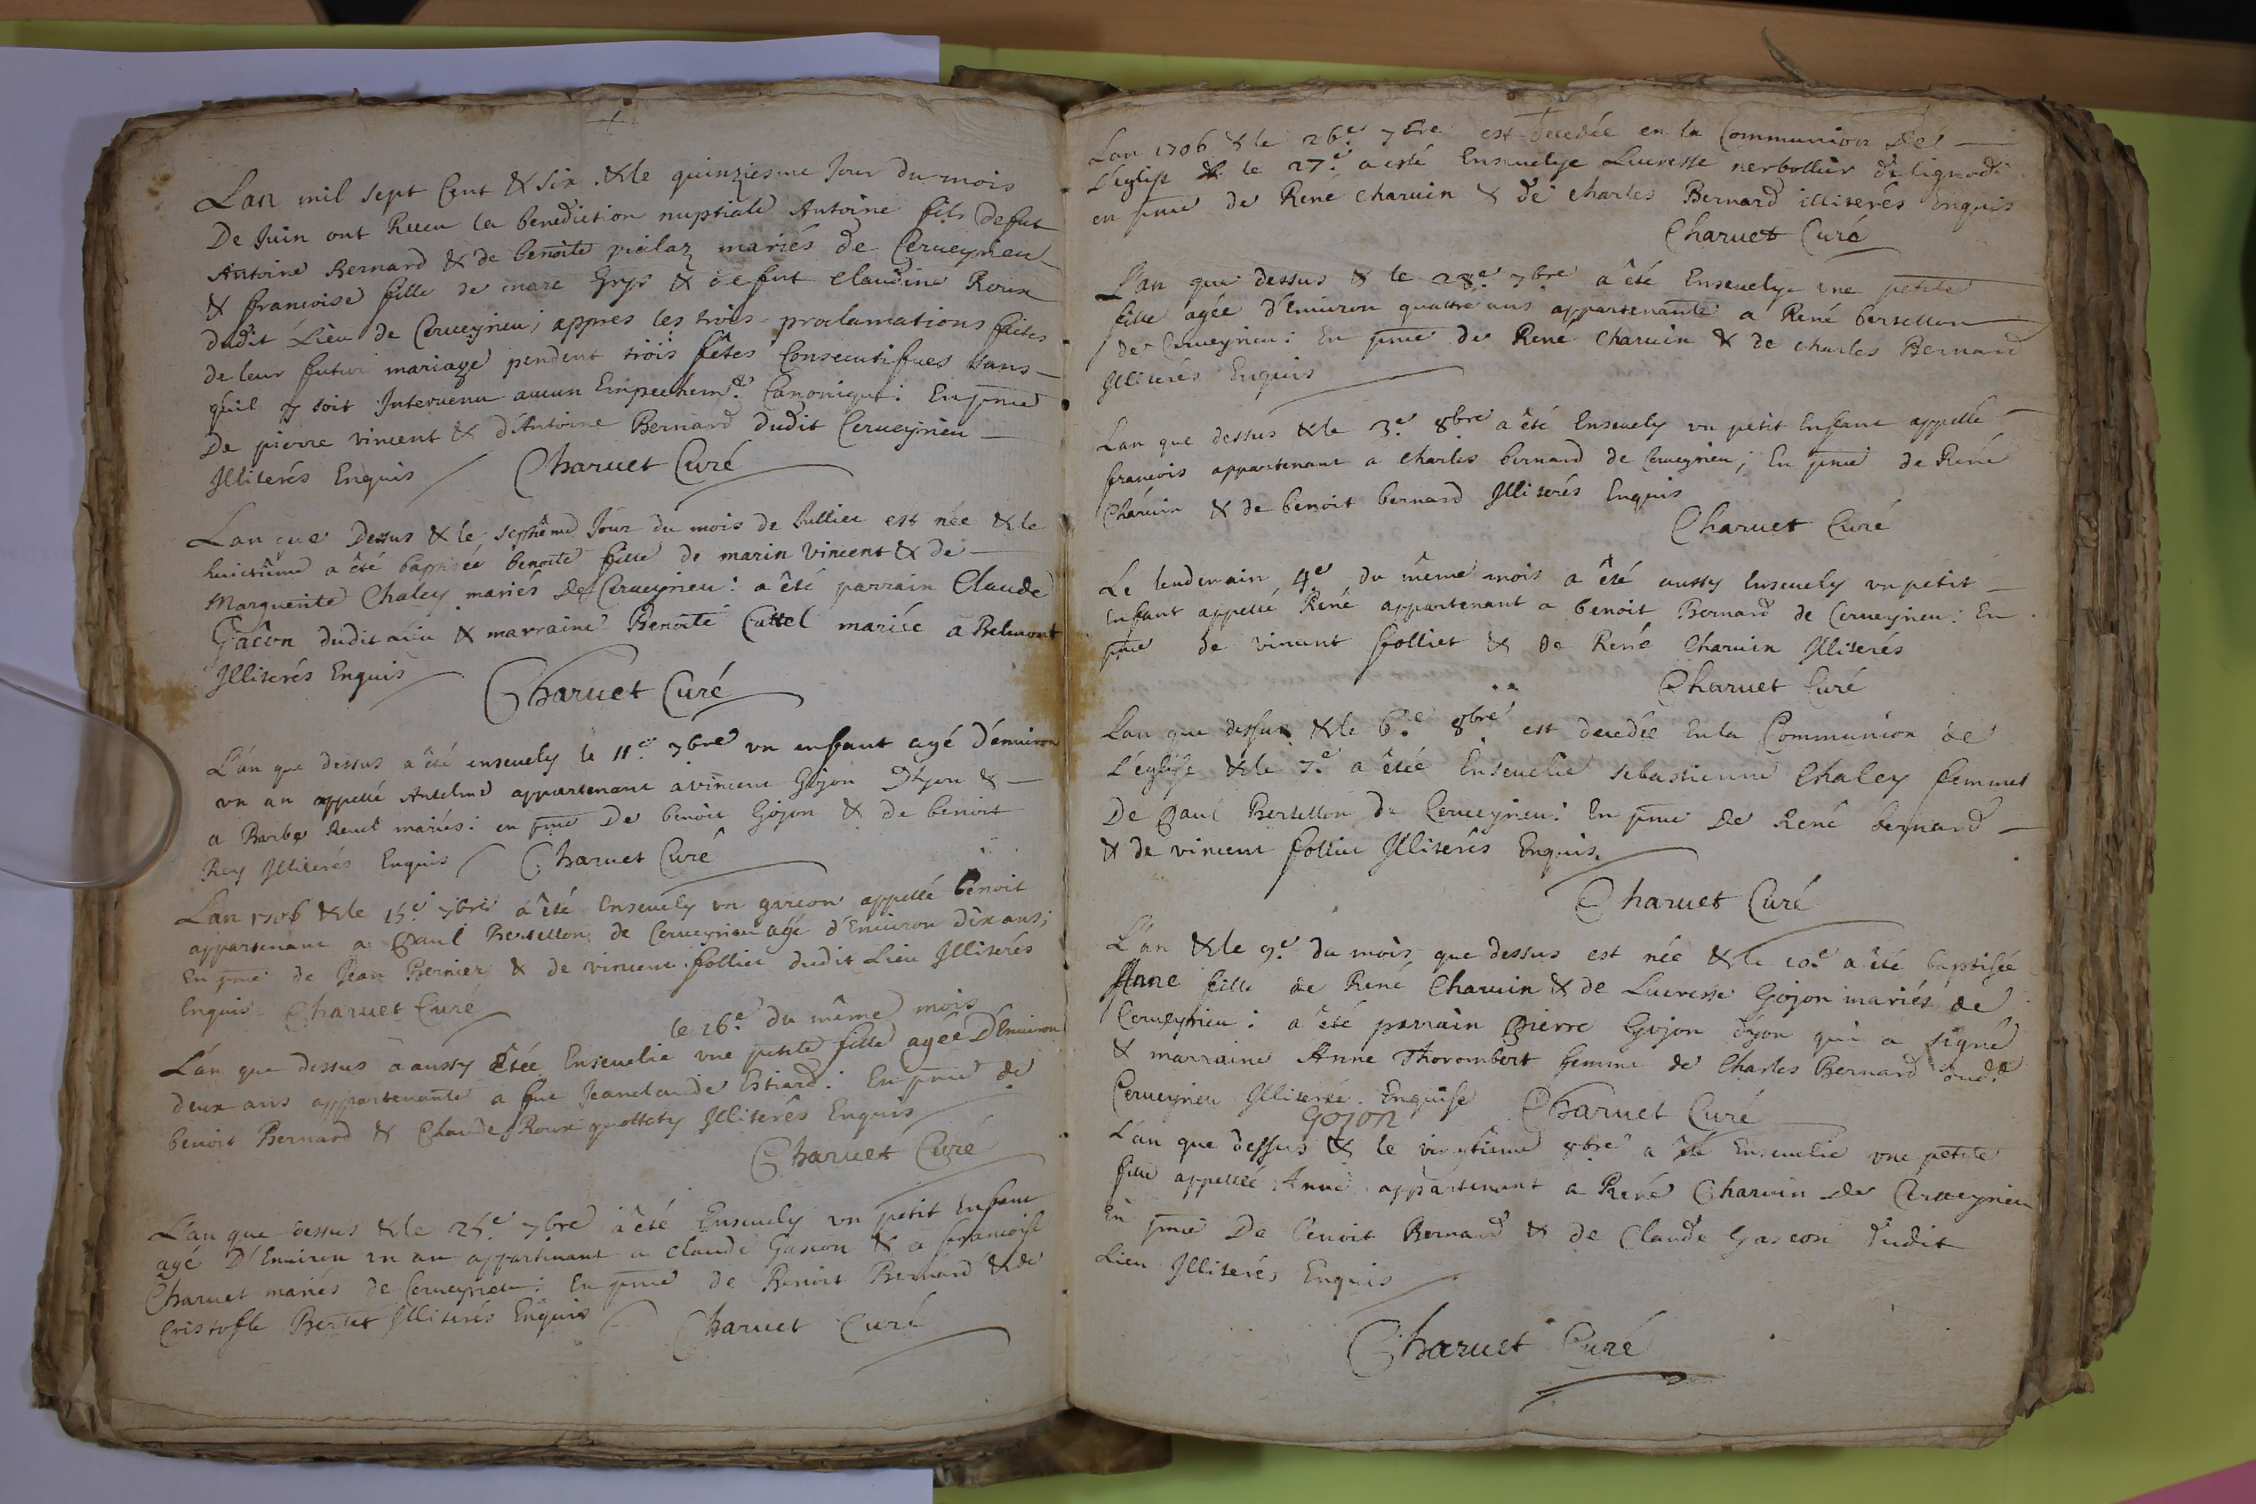 Lan mil sept Cent & Six & le quinziesme Jour du mois
De Juin ont Receu la benediction nuptiale Antoine fils defut
Antoine Bernard & de benoite vialaz mariés de Cerueyrieu
& francoise fille de marc & defut Claudine Roux
dudit Lieu de Cerueyrieu; appres les trois proclamations faites
de leur futur mariage pendent trois fêtes Consecutifues sans
quil y soit Interuenu aucun Empechemt. Canonique: En pnce
De pierre vincent & d'Antoine Bernard dudit Cerueyrieu
Jlliterés Enquis Charuet Curé
Lan que Dessus & le septiême Jour du mois de Juillet est née & le
huictiême a été baptisée benoite fille de marin vincent & de
Marguerite Chaley mariés de Cerueyrieu: a êté parrain Claude
Gacon dudit lieu & marraine Benoite Cattel mariée a Belmont
Jlliterés Enquis Charuet Curé
L'an que dessus a êté enseuely le 11e 7bre vn enfant agé d'enuiron
vn an appellé Antelme appartenant a vincent Gojon & 
a Barbe mariés: en pnce De benoit Gojon & de benoit
Rey Jlliterés Enquis Charuet Curé
L'an 1706 & le 15e 7bre a êté Enseuely vn garcon appellé benoit
appartenant a Paul Bertellon de Cerueyrieu agé d'Enuiron dix ans;
En pnce de Jean Bernier & de vincent folliet dudit Lieu Jlliterés
Enquis Charuet Curé
le 16e du même mois
L'an que dessus a aussy êtée Enseuelie vne petite fille agée D'Enuiron
deux ans appartenante a fut Jeanclaude Estiard: En pnce de
benoit Bernard & Claude Roux Jlliterés Enquis
Charuet Curé
L'an que dessus & le 25e 7bre a êté Enseuely vn petit enfant
agé D'Enuiron vn an appartenant a claude Gascon & a francoise
Charuet mariés de Cerueyrieu: En pnce de Benoit Bernard & de
Cristofle Bertet Jlliterés Enquis Charuet Curé
Lan 1706 & le 26e 7bre est decedée en la Communion De
L'eglise & le 27e a esté Enseuelye Lucresse nerbollier de lignod
en pnce de Rene charuin & de charles Bernard illiterés Enquis
Charuet Curé
L'an que dessus & le 28e 7bre a êté Enseuelye vne petite
fille agée d'Enuiron quattre ans appartenante a René bertellon
de Cerueyrieu: En pnce de René charuin & de charles Bernard
Jlliterés Enquis
Lan que dessus & le 3e 8bre a êté Enseuely vn petit Enfant appellé
francois appartenant a charles bernard de Cerueyrieu; En pnce de René
Charuin & de benoit bernard Jlliterés Enquis
Charuet Curé
Le lendemain 4e du même mois a êté aussy Enseuely vn petit
Enfant appellé René appartenant a benoit Bernard de Cerueyrieu: En
pnce de vincent folliet & de René Charuin Jlliterés
Charuet Curé
Lan que dessus & le 6e 8bre est decedée En la Communion de
L'eglise & le 7e a êtée Enseuelie sebastienne Chaley femme
De Paul Bertellon de Cerueyrieu: En pnce De René bernard
& de vincent folliet Jlliterés Enquis.
Charuet Curé
L'an & le 9e du mois que dessus est née & le 10e a êté baptisée
Anne fille de René Charuin & de Lucresse Gojon mariés de
Cerueyrieu: a êté parrain Pierre Gojon qui a signé
& marraine Anne Thorombert femme de Charles Bernard dudt
Cerueyrieu Jlliterée Enquise Charuet Curé
Gojon
L'an que dessus & le vingtieme 8bre a êté Enseuelie vne petite
fille appellée Anne appartenant a René Charuin de Cerueyrieu
En pnce De benoit Bernard & de Claude Gascon dudit
Lieu Jlliterés Enquis
Charuet Curé